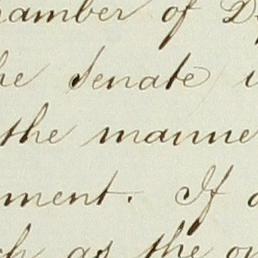 hamber of De
he Senate i
the manne
ment. If a
ch as the or